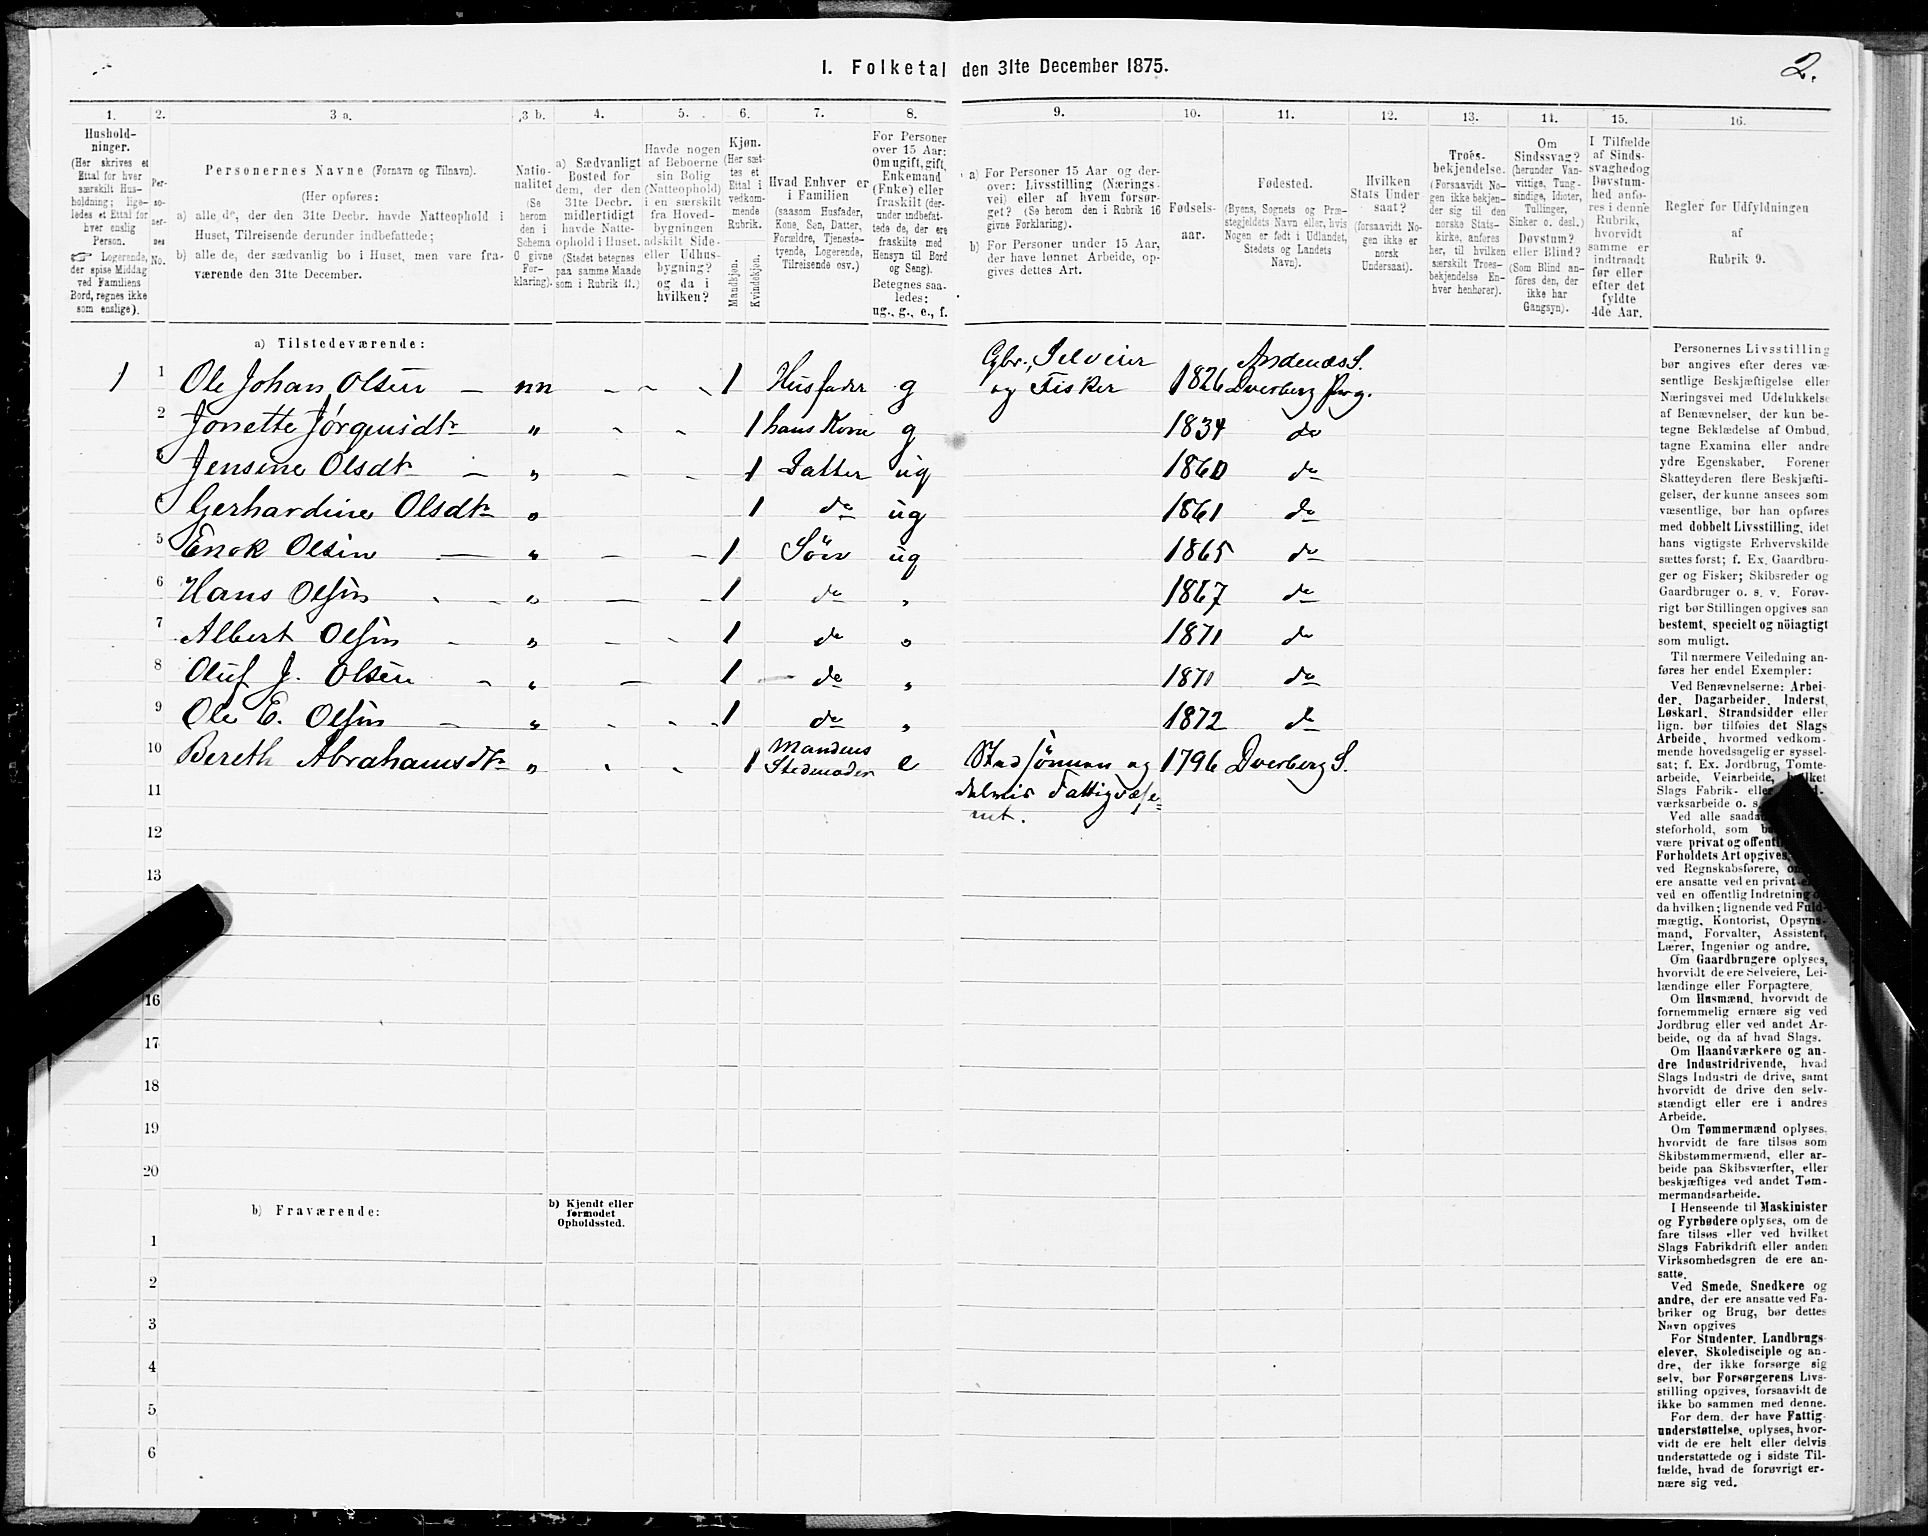 I. Folketal den 31te December 1875.
2.
1.
Hushold-
ninger.
(Her skrives et
Ettal for hver
særskilt Hus-
holdning; lige-
ledes et Ettal for
hver enslig
Person.
☞ Logerende,
der spise Middag
ved Familiens
Bord, regnes ikke
som enslige).
2.
Per-
so-
ner-
nes
No.
3 a.
Personernes Navne (Fornavn og Tilnavn).
(Her opføres:
a) alle de, der den 31te Decbr. havde Natteophold i
Huset, Tilreisende derunder indbefattede;
b) alle de, der sædvanlig bo i Huset, men vare fra-
værende den 31te December.
3 b.
Natio-
nalitet
(Se
herom
den i
Schema
O givne
For-
klaring).
4.
a) Sædvanligt
Bosted for
dem, der den
31te Decbr.
midlertidigt
havde Natte-
ophold i Huset.
(Stedet betegnes
paa samme Maade
som i Rubrik 11.)
5.
Havde nogen
af Beboerne
sin Bolig
(Natteophold)
i en særskilt
fra Hoved-
bygningen
adskilt Side-
eller Udhus-
bygning?
og da i
hvilken?
6.
Kjøn.
(Her sæt-
tes et
Ettal i
vedkom-
mende
Rubrik.
Mandkjøn.
Kvindekjøn.
7.
Hvad Enhver er
i Familien
(saasom Husfader,
Kone, Søn, Datter,
Forældre, Tjeneste-
tyende, Logerende,
Tilreisende osv.)
8.
For Personer
over 15 Aar:
Om ugift, gift,
Enkemand
(Enke) eller
fraskilt (der-
under indbefat-
tede de, der ere
fraskilte med
Hensyn til Bord
og Seng).
Betegnes saa-
ledes:
ug., g., e., f.
9.
a) For Personer 15 Aar og der-
over: Livsstilling (Nærings-
vei) eller af hvem forsør-
get? (Se herom den i Rubrik 16
givne Forklaring).
b) For Personer under 15 Aar,
der have lønnet Arbeide, op-
gives dettes Art.
10.
Fødsels-
aar.
11.
Fødested.
(Byens, Sognets og Præ-
stegjeldets Navn eller, hvis
Nogen er født i Udlandet,
Stedets og Landets
Navn).
12.
Hvilken
Stats Under-
saat?
(forsaavidt No-
gen ikke er
norsk
Undersaat).
13.
Troes-
bekjendelse.
(Forsaavidt No-
gen ikke bekjen-
der sig til den
norske Stats-
kirke, anføres
her, til hvilken
særskilt Troes-
bekjendelse En-
hver henhører).
14.
Om
Sindssvag?
(herunder Van-
vittige, Tung-
sindige, Idioter,
Tullinger,
Sinker o. desl.)
Døvstum?
eller Blind?
(Som Blind an-
føres den, der
ikke har
Gangsyn).
15.
I Tilfælde
af Sinds-
svaghed og
Døvstum-
hed anfø-
res i denne
Rubrik,
hvorvidt
samme er
indtraadt
før eller
efter det
fyldte
4de Aar.
16.
Regler for Udfyldningen
af
Rubrik 9.
a) Tilstedeværende:
1 1 Ole Johan Olsen — nn 1 Husfader g Gbr., Selveier og Fisker 1826 Andenæs S. Dverberg Prg.
2 Jonette Jørgensdtr „ 1 hans Kone g 1834 do
Jensine Olsdtr — „ 1 Datter ug 1860 do
Gerhardine Olsdtr „ 1 do ug 1861 do
5 Enok Olsen — „ 1 Søn ug 1865 do
6 Hans Olsen „ 1 do „ 1867 do
7 Albert Olsen „ 1 do „ 1871 do
8 Oluf J. Olsen „ 1 do „ 1871 do
9 Ole E. Olsen „ 1 do „ 1872 do
10 Bereth Abrahamsdtr „ 1 Mandens Stedmoder e Stedsønnen og 1796 Dverberg S.
11 delvis Fattigvæse=
net.
12
13
16
17
18
19
20
b) Fraværende:
b) Kjendt eller
formodet
Opholdssted.
1
2
3
4
5
6
Personernes Livsstilling
bør angives efter deres væ-
sentlige Beskjæftigelse eller
Næringsvei med Udelukkelse
af Benævnelser, der kun be-
tegne Beklædelse af Ombud,
tagne Examina eller andre
ydre Egenskaber. Forener
Skatteyderen flere Beskjæfti-
gelser, der kunne ansees som
væsentlige, bør han opføres
med dobbelt Livsstilling, idet
hans vigtigste Erhvervskilde
sættes først; f. Ex. Gaardbru-
ger og Fisker; Skibsreder og
Gaardbruger o. s. v. Forøv-
rigt bør Stillingen opgives saa
bestemt, specielt og nöiagtigt
som muligt.
Til nærmere Veiledning an-
føres her endel Exempler:
Ved Benævnelserne: Arbei-
der, Dagarbeider, Inderst,
Løskarl, Strandsidder eller
lign. bør tilføies det Slags
Arbeide, hvormed vedkom-
mende hovedsagelig er syssel-
sat; f. Ex. Jordbrug, Tomte-
arbeide, Veiarbeide, hvilket
Slags Fabrik- eller
værksarbeide o. s.
Ved alle saadan
steforhold, som
være privat og offentl
Forholdets Art opgives,
ved Regnskabsførere, om
ere ansatte ved en privat
ved en offentlig Indretning
da hvilken; lignende ved Fuld-
mægtig, Kontorist, Opsyns-
mand, Forvalter, Assistent,
Lærer, Ingeniør og andre.
Om Gaardbrugere oplyses,
hvorvidt de ere Selveiere, Lei-
lændinge eller Forpagtere.
Om Husmænd, hvorvidt de
fornemmelig ernære sig ved
Jordbrug eller ved andet Ar-
beide, og da af hvad Slags.
Om Haandværkere og an-
dre Industridrivende, hvad
Slags Industri de drive, samt
hvorvidt de drive den selv-
stændigt eller ere i andres
Arbeide.
Om Tømmermænd oplyses,
hvorvidt de fare tilsøs som
Skibstømmermænd, eller ar-
beide paa Skibsværfter, eller
beskjæftiges ved andet Tøm-
mermandsarbeide.
I Henseende til Maskinister
og Fyrbødere oplyses, om de
fare tilsøs eller ved hvilket
Slags Fabrikdrift eller anden
Virksomhedsgren de ere an-
satte.
Ved Smede, Snedkere og
andre, der ere ansatte ved Fa-
briker og Brug, bør dettes
Navn opgives
For Studenter, Landbrugs-
elever, Skoledisciple og an-
dre, der ikke forsørge sig
selv, bør Forsørgerens Livs-
stilling opgives, forsaavidt de
ikke bo sammen med denne.
For dem, der have Fattig-
understøttelse, oplyses, hvor-
vidt de ere helt eller delvis
understøttede og i sidste Til-
fælde, hvad de forøvrigt er-
nære sig ved.